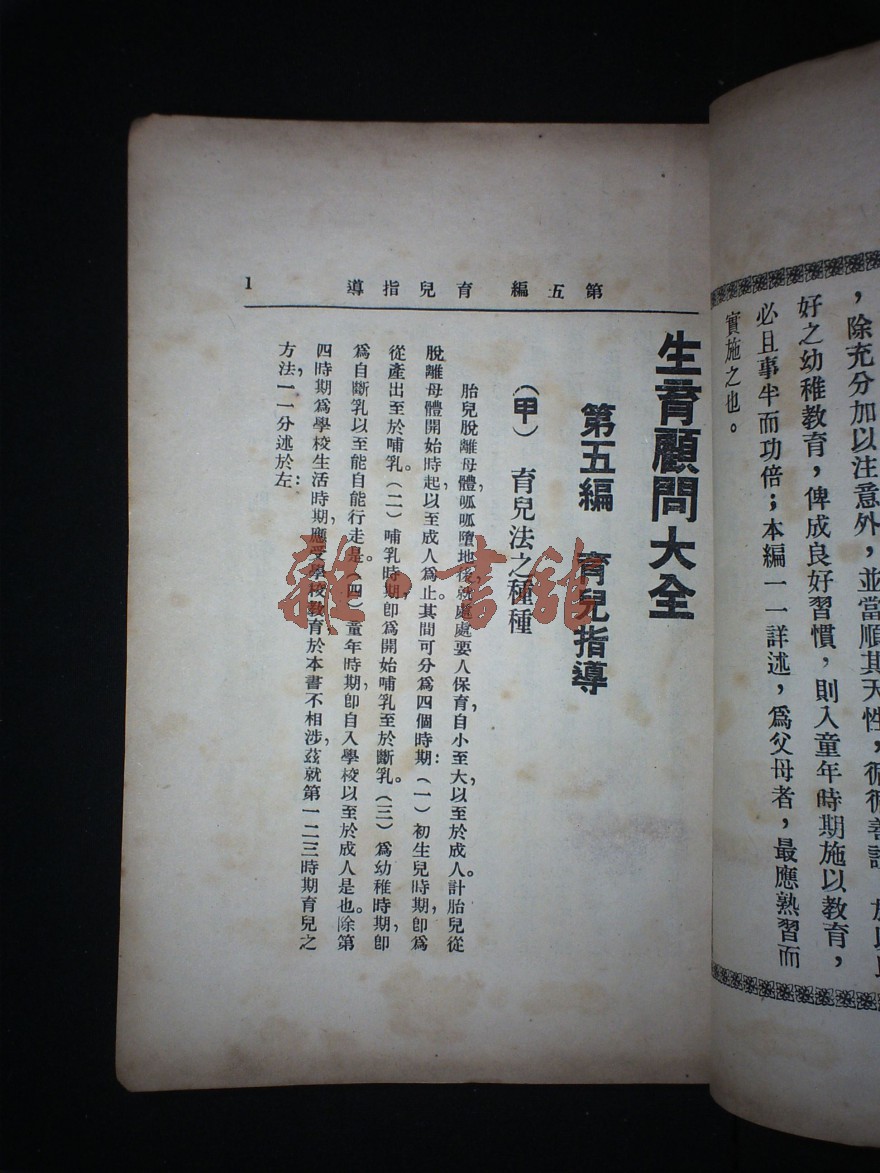 ，除充分加以注意外，並當順其天性，循循善誘
好之幼稚教育，俾成良好習慣，則入童年時期施以教育，
必且事半而功倍；本編一一詳述，爲父母者，最應熟習而
實施之也。
第五編 育兒指導
1
生育顧問大全
第五編 育兒指導
（甲） 育兒法之種種
胎兒脫離母體，呱呱墮地後，就處處要人保育，自小至大，以至於成人。計胎兒從
脫離母體開始時起，以至成人爲止。其間可分爲四個時期：（一）初生兒時期，卽爲
從產出至於哺乳。（二）哺乳時期，卽爲開始哺乳至於斷乳。（三）爲幼稚時期，卽
爲自斷乳以至能自能行走是。（四）童年時期，卽自入學校以至於成人是也。除第
四時期爲學校生活時期，應受學校教育，於本書不相涉，茲就第一二三時期育兒之
方法，一一分述於左：
雜·書館